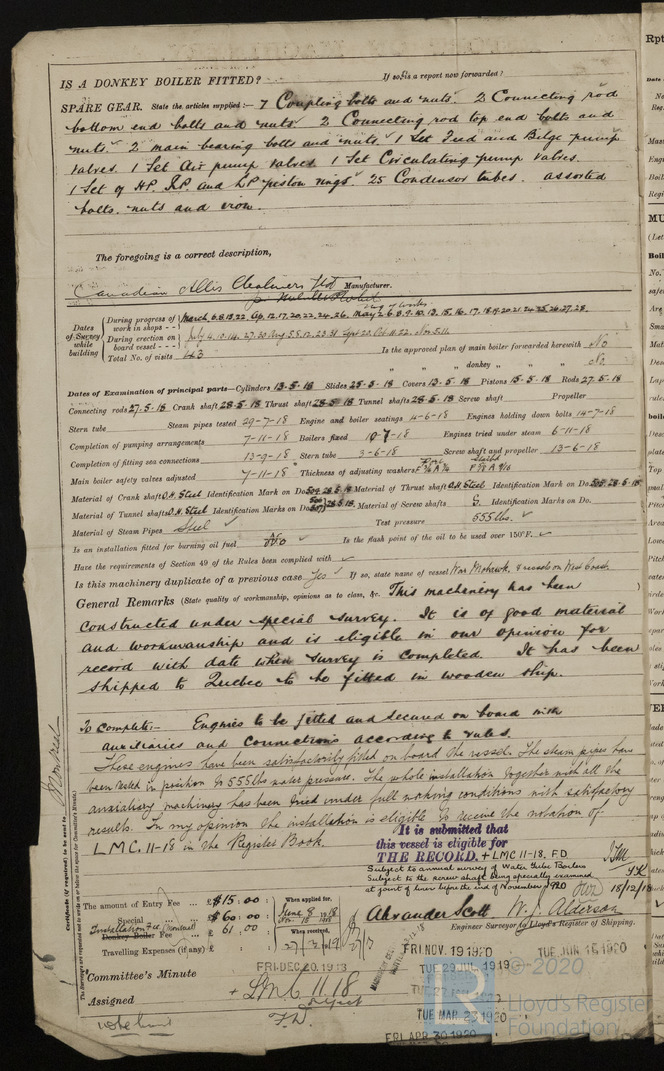 IS A DONKEY BOILER FITTED? If so, is a report now forwarded?
SPARE GEAR. State the articles supplied:— 7 Coupling bolts and nuts. 2 Connecting rod
bottom end bolts and nuts. 2 Connecting rod top end bolts and
nuts. 2 main bearing bolts and nuts. 1 Set Feed and Bilge pump
valves. 1 Set Air pump valves. 1 Set Circulating pump valves.
1 Set of H.P. I.P. and L.P. piston rings. 25 Condensor tubes. assorted
bolts. nuts and iron.
The foregoing is a correct description,
Canadian Allis Chalmers Ltd Manufacturer.
Dates of Survey while building
During progress of work in shops - - March 6.8.13.22 Ap. 12.17.20.22.24.26. May 2.6.8.9.10.13.15.16.17.18.19.20.21.24.25.26.27.28.
During erection on board vessel - - - July 4.10.14.27.30 Aug 5.8.12.23.31 Sept 20. Oct 11.22. Nov 5.11
Total No. of visits 43 Is the approved plan of main boiler forwarded herewith No
" " " donkey " " " No
Dates of Examination of principal parts—Cylinders 13.5.18 Slides 25.5.18 Covers 13.5.18 Pistons 13.5.18 Rods 27.5.18
Connecting rods 27.5.18 Crank shaft 28.5.18 Thrust shaft 28.5.18 Tunnel shafts 28.5.18 Screw shaft Propeller
Stern tube Steam pipes tested 29-7-18 Engine and boiler seatings 4-6-18 Engines holding down bolts 14-7-18
Completion of pumping arrangements 7-11-18 Boilers fixed 10-7-18 Engines tried under steam 6-11-18
Completion of fitting sea connections 13-9-18 Stern tube 3-6-18 Screw shaft and propeller 13-6-18
Main boiler safety valves adjusted 7-11-18 Thickness of adjusting washers
Material of Crank shaft O.H. Steel Identification Mark on Do. 28.5.18 Material of Thrust shaft O.H. Steel Identification Mark on Do. 28.5.18
Material of Tunnel shafts O.H. Steel Identification Marks on Do. 28.5.18 Material of Screw shafts S. Identification Marks on Do.
Material of Steam Pipes Steel Test pressure 555 lbs.
Is an installation fitted for burning oil fuel No Is the flash point of the oil to be used over 150°F.
Have the requirements of Section 49 of the Rules been complied with
Is this machinery duplicate of a previous case Yes If so, state name of vessel War Mohawk & vessels on West Coast
General Remarks (State quality of workmanship, opinions as to class, &c. This machinery has been
constructed under special survey. It is of good material
and workmanship and is eligible in our opinion for
record with date when survey is completed. It has been
shipped to Quebec to be fitted in wooden ship.
To complete:- Engines to be fitted and secured on board with
auxiliaries and connections according to rules.
These engines have been satisfactorily fitted on board the vessel. The steam pipes have
been tested in position to 555 lbs water pressure. The whole installation together with all the
auxiliary machinery has been tried under full working conditions with satisfactory
results. In my opinion the installation is eligible to receive the notation of
LMC. 11-18 in the Register Book.
It is submitted that
this vessel is eligible for
THE RECORD. + LMC 11-18. F.D.
Subject to annual survey of Water Tube Boilers
Subject to the screw shaft being specially examined
at joint of liner before the end of November 1920
18/12/18
The amount of Entry Fee £ $15: 00: When applied for.
Special £ $60: 00: June 8 1918
Installation Fee
Donkey Boiler Fee £ 61: 00 When received,
Travelling Expenses (if any) £
Alexander Scott W. J. Alderson
Engineer Surveyor to Lloyd's Register of Shipping.
Committee's Minute FRI. DEC. 20. 1918
Assigned + LMC 11.18
F.D.
FRI. NOV. 19 1920
TUE. JUN. 15 1920
TUE. 29 JUL. 1919
TUE. MAR. 23 1920
FRI. APR. 30 1920
Montreal
Certificate (if required) to be sent to
© 2020
LR
Lloyd's Register
Foundation